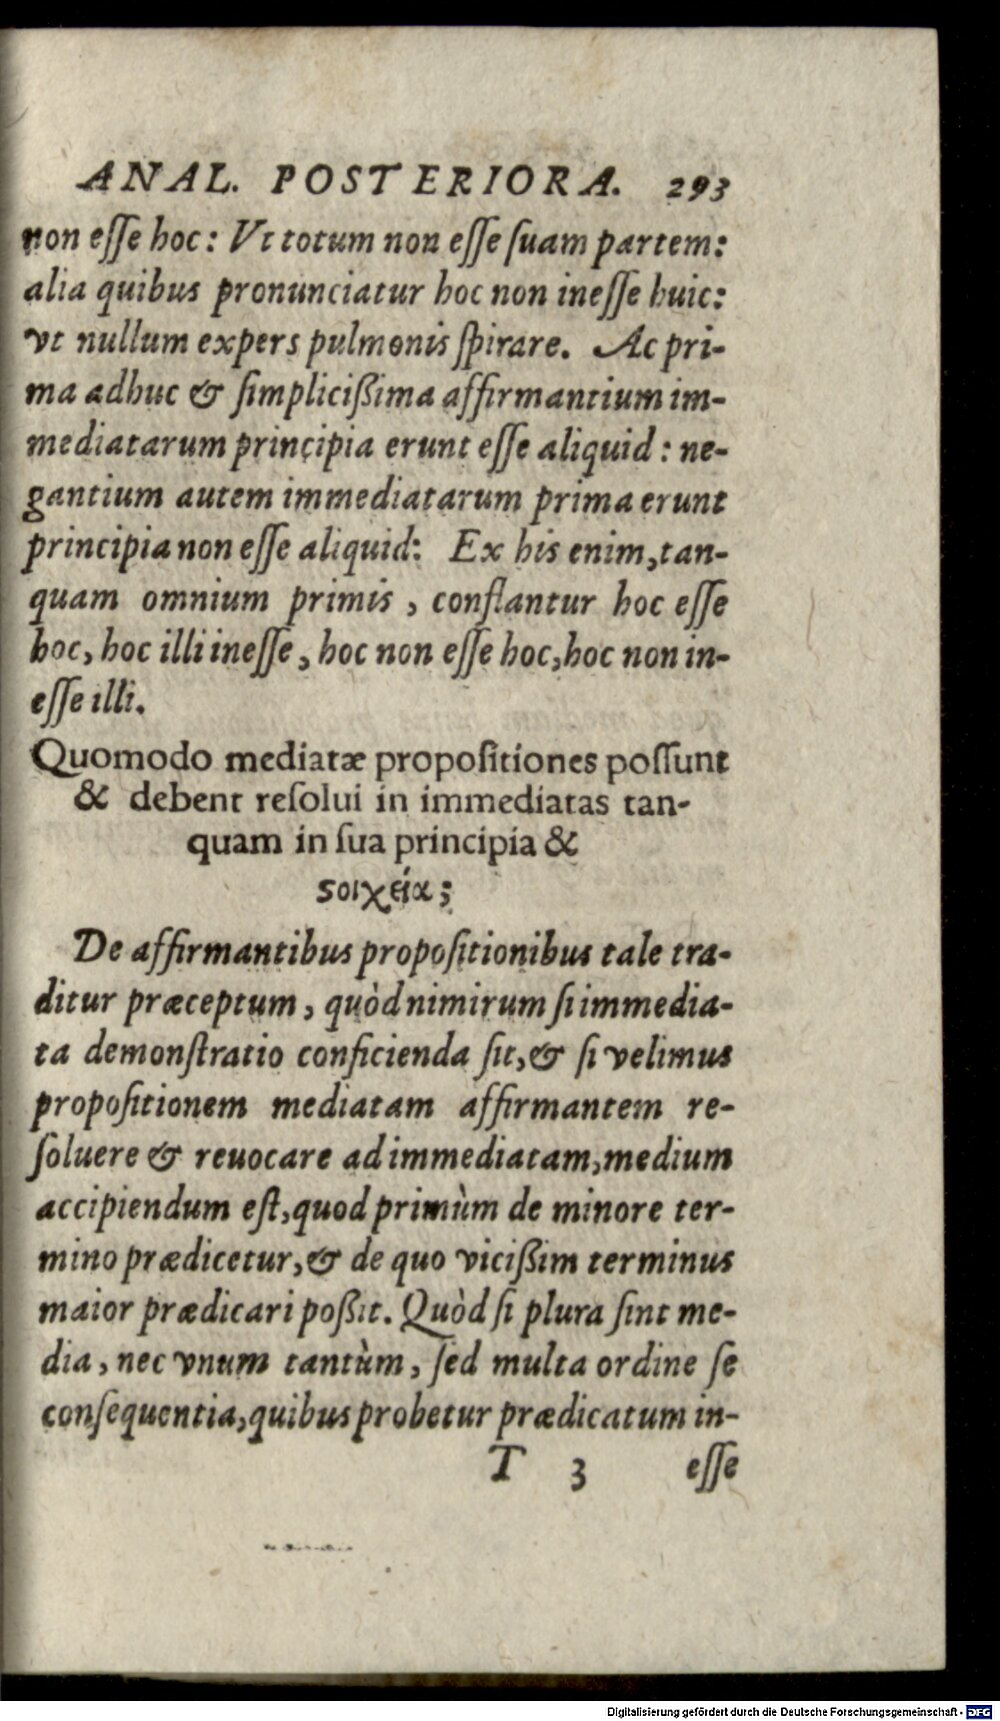 ANAL. POSTERIORA. 293
non eſſe hoc: Vt totum non eſſe ſuam partem:
alia quibus pronunciatur hoc non ineſſe huic:
vt nullum expers pulmonis ſpirare. Ac pri-
ma adhuc & ſimplicißima affirmantium im-
mediatarum principia erunt eſſe aliquid: ne-
gantium autem immediatarum prima erunt
principia non eſſe aliquid: Ex his enim, tan-
quam omnium primis, conſtantur hoc eſſe
hoc, hoc illi ineſſe, hoc non eſſe hoc, hoc non in-
eſſe illi.
Quomodo mediatæ propoſitiones poſſunt
& debent reſolui in immediatas tan-
quam in ſua principia &
ϛοιχεία;
De affirmantibus propoſitionibus tale tra-
ditur præceptum, quòd nimirum ſi immedia-
ta demonſtratio conficienda ſit, & ſi velimus
propoſitionem mediatam affirmantem re-
ſoluere & reuocare ad immediatam, medium
accipiendum eſt, quod primùm de minore ter-
mino prædicetur, & de quo vicißim terminus
maior prædicari poßit. Quòd ſi plura ſint me-
dia, nec vnum tantùm, ſed multa ordine ſe
conſequentia, quibus probetur prædicatum in-
T 3 eſſe
Digitalisierung gefördert durch die Deutsche Forschungsgemeinschaft - DFG